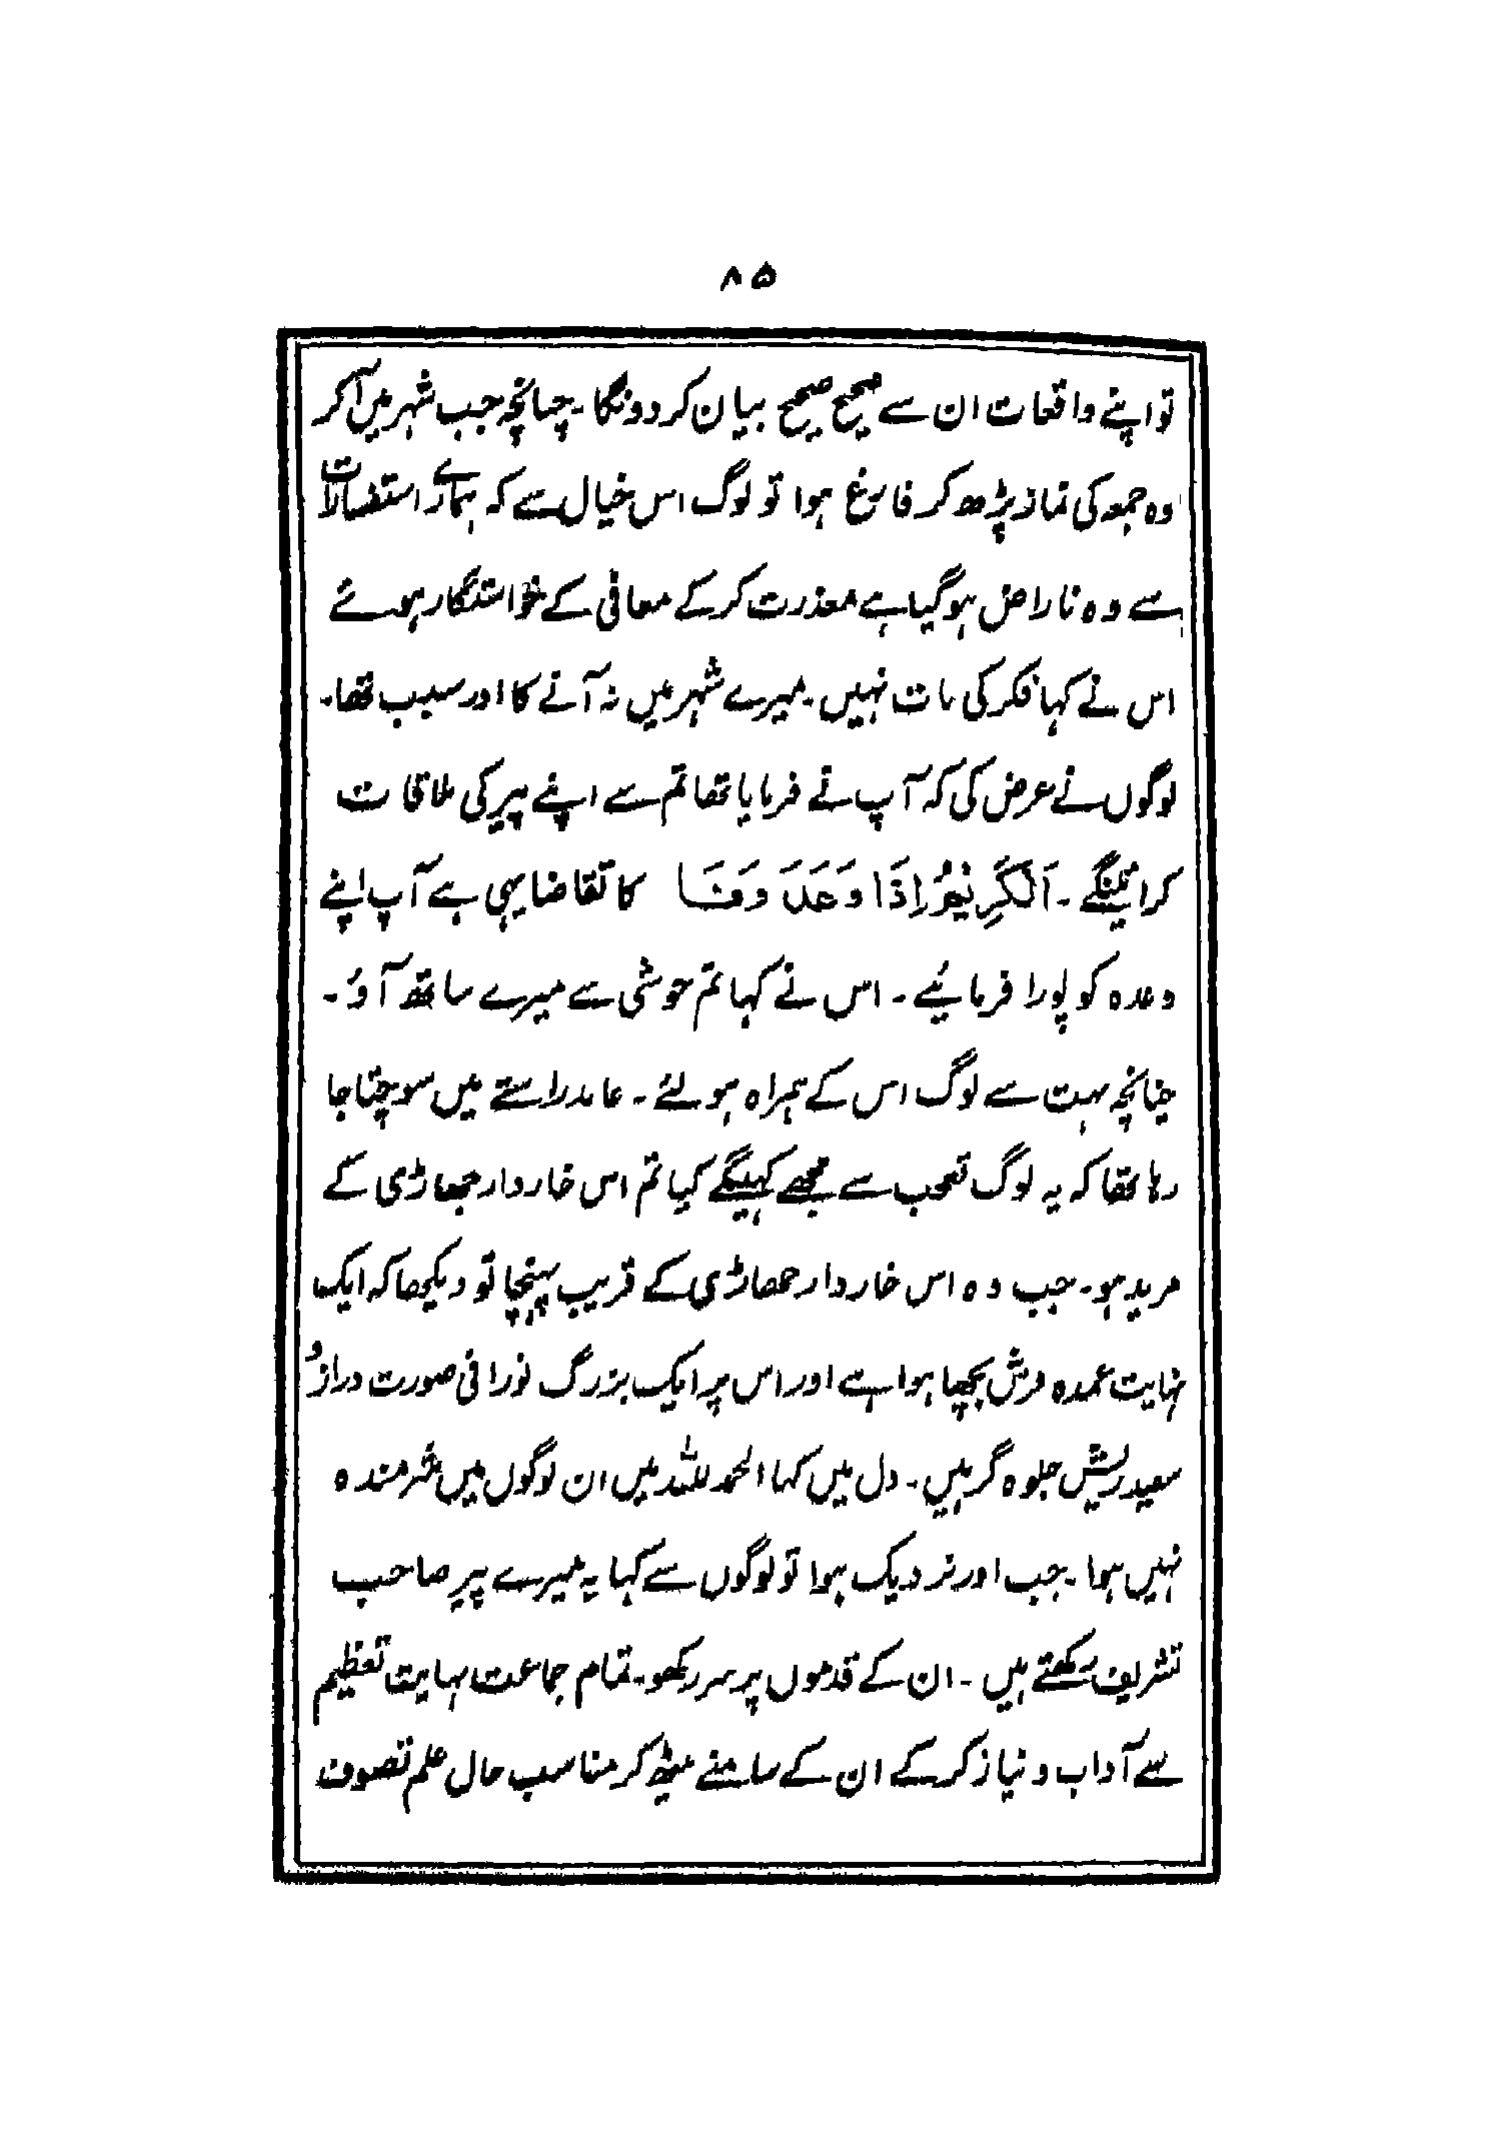 ۸۵
تو اپنے واقعات ان سے صحیح صحیح بیان کر دونگا۔ چنانچہ جب شہر میں آکر
وہ جمعہ کی نماز پڑھ کر فارغ ہوا تو لوگ اس خیال سے کہ ہمارے استفسارات
سے وہ ناراض ہوگیا ہے معذرت کر کے معافی کے خواستگار ہوئے
اس نے کہا فکر کی بات نہیں۔ میرے شہر میں نہ آنے کا اور سبب تھا۔
لوگوں نے عرض کی کہ آپ نے فرمایا تھا تم سے اپنے پیر کی ملاقات
کرائینگے۔ اَلْکَرِیْمُ اِذَا وَعَدَ وَفَا کا تقاضا یہی ہے آپ اپنے
وعدہ کو پورا فرمائیے۔ اس نے کہا تم خوشی سے میرے ساتھ آؤ۔
چنانچہ بہت سے لوگ اس کے ہمراہ ہولئے۔ عابد راستے میں سوچتا جا
رہا تھا کہ یہ لوگ تعجب سے مجھے کہینگے کیا تم اس خاردار جھاڑی کے
مرید ہو۔ جب وہ اس خاردار جھاڑی کے قریب پہنچا تو دیکھا کہ ایک
نہایت عمدہ فرش بچھا ہوا ہے اور اس پر ایک بزرگ نورانی صورت دراز و
سفید ریش جلوہ گر ہیں۔ دل میں کہا الحمد للہ میں ان لوگوں میں شرمندہ
نہیں ہوا۔ جب اور نزدیک ہوا تو لوگوں سے کہا یہ میرے پیر صاحب
تشریف رکھتے ہیں۔ ان کے قدموں پر سر رکھو۔ تمام جماعت نہایت تعظیم
سے آداب و نیاز کر کے ان کے سامنے بیٹھ کر مناسب حال علم تصوف